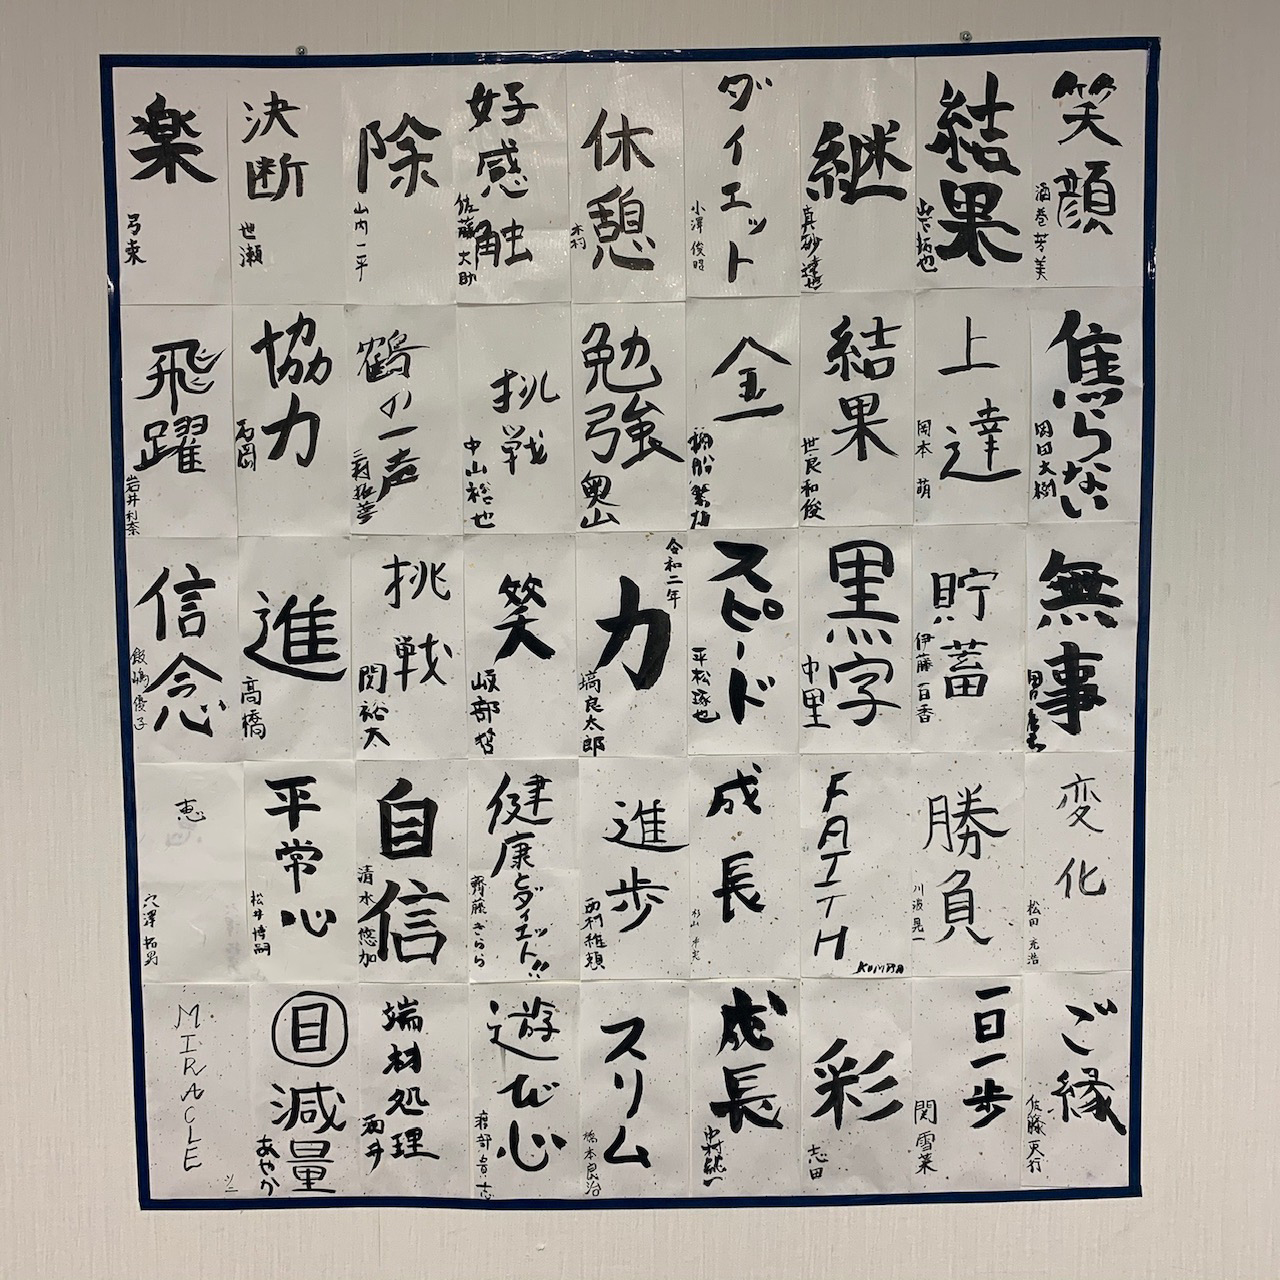 笑顔
酒巻芳美
結果
山下拓也
継
真砂達也
ダイエット
小澤俊昭
休憩
木村
好感触
佐藤大助
除
山内一平
決断
世瀬
楽
焦らない
岡田大樹
上達
岡本萌
結果
世良和俊
金
勉強
奥山
挑戦
中山裕也
鶴の一声
協力
石岡
飛躍
岩井利奈
無事
貯蓄
伊藤百香
黒字
中里
スピード
平松琢也
令和二年
力
塙良太郎
笑
岐部哲
挑戦
関裕大
進
高橋
信念
飯嶋優子
変化
松田充浩
勝負
川波晃一
FAITH
成長
杉山
進歩
西村雅頼
健康とダイエット!!
齊藤きらら
自信
清水悠加
平常心
松井博嗣
恵
穴澤拓男
ご縁
一日一歩
関雪菜
彩
志田
成長
スリム
橋本良治
遊び心
渡部貴志
端材処理
酒井
目減量
あやか
MIRACLE